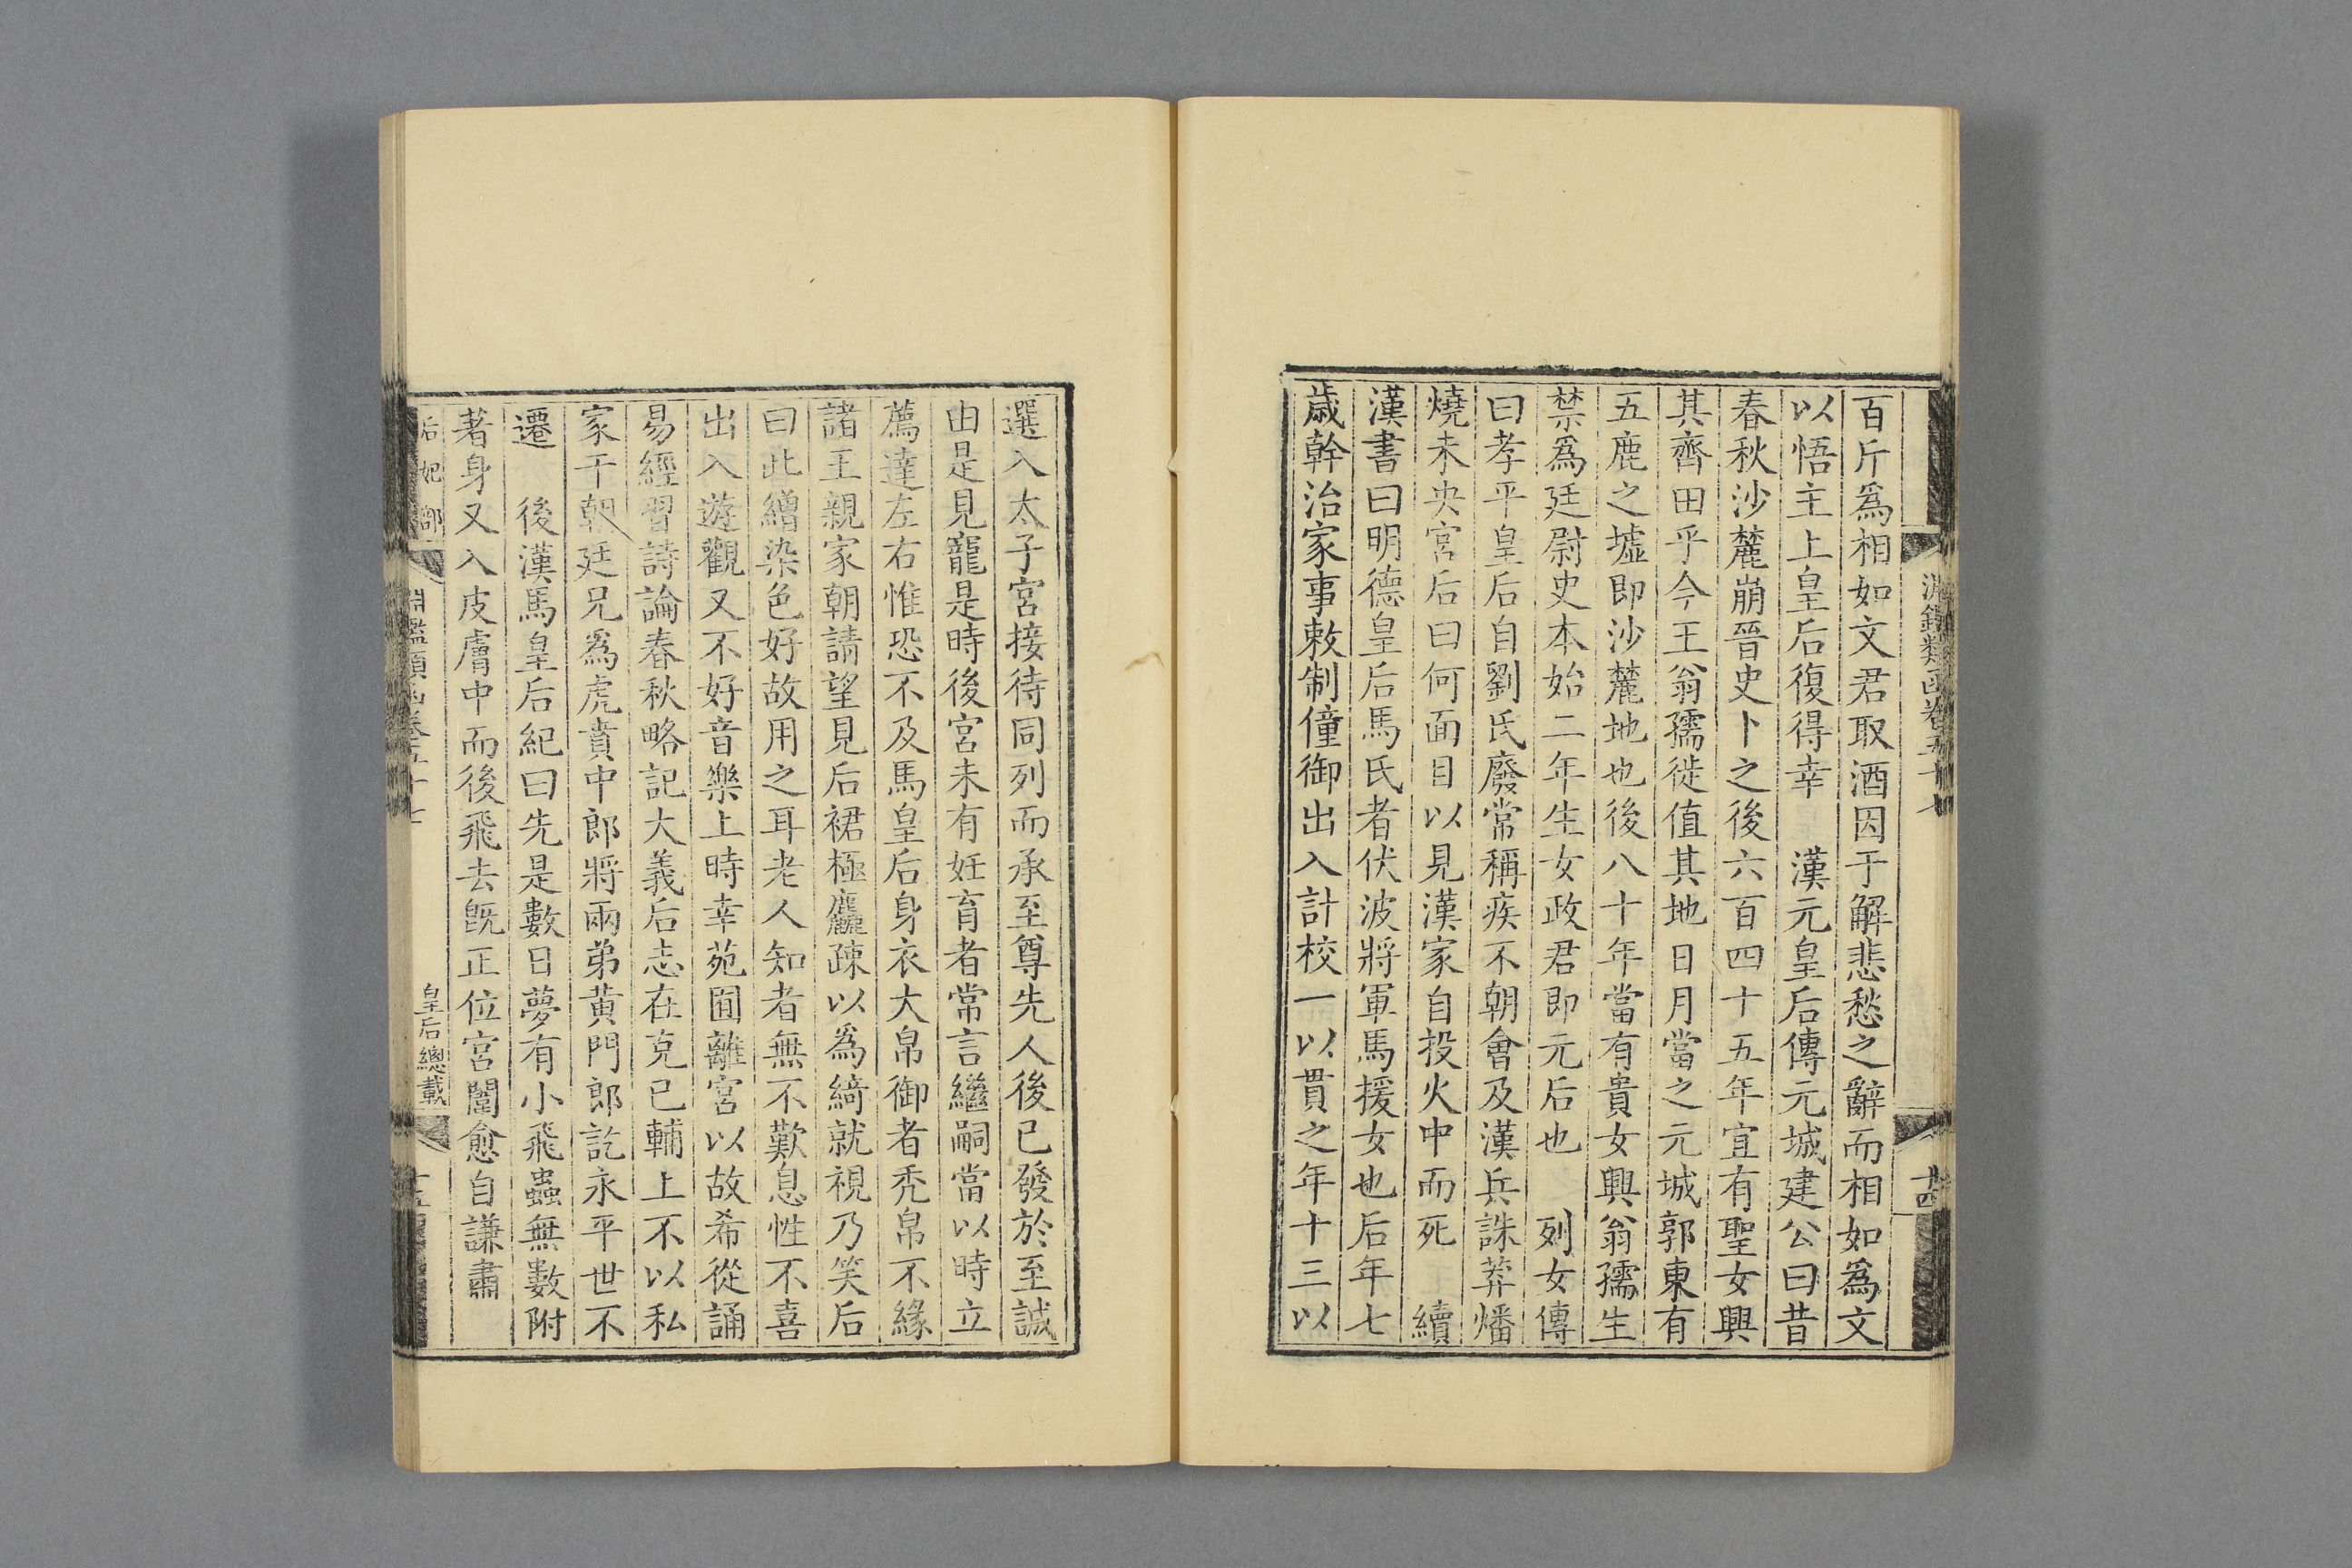 淵鑑類函卷五十七
十四
百斤爲相如文君取酒因于解悲愁之辭而相如爲文
以悟主上皇后復得幸　漢元皇后傳元城建公曰昔
春秋沙麓崩晉史卜之後六百四十五年宜有聖女興
其齊田乎今王翁孺徙值其地日月當之元城郭東有
五鹿之墟即沙麓地也後八十年當有貴女興翁孺生
禁爲廷尉史本始二年生女政君即元后也　列女傳
曰孝平皇后自劉氏廢常稱疾不朝會及漢兵誅莽燔
燒未央宮后曰何面目以見漢家自投火中而死　續
漢書曰明德皇后馬氏者伏波將軍馬援女也后年七
歲幹治家事敕制僮御出入計校一以貫之年十三以
選入太子宮接待同列而承至尊先人後己發於至誠
由是見寵是時後宮未有妊育者常言繼嗣當以時立
薦達左右惟恐不及馬皇后身衣大帛御者禿帛不緣
諸王親家朝請望見后裙極麤疎以爲綺就視乃笑后
曰此繒染色好故用之耳老人知者無不歎息性不喜
出入遊觀又不好音樂上時幸苑囿離宮以故希從誦
易經習詩論春秋略記大義后志在克己輔上不以私
家干朝廷兄爲虎賁中郎將兩弟黃門郎訖永平世不
遷　後漢馬皇后紀曰先是數日夢有小飛蟲無數附
著身又入皮膚中而後飛去旣正位宮闈愈自謙肅
后妃部
淵鑑類函卷五十七
皇后總載
十五